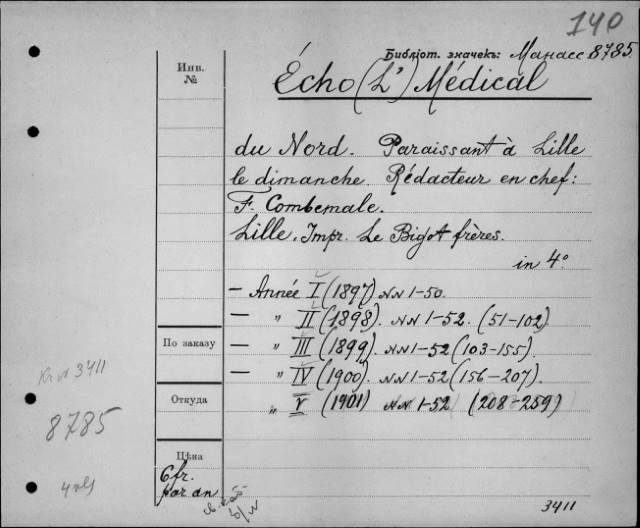 140
Библіот. значекъ: Манасс 8785.
Инв. №
Écho (L') Médical
du Nord. Paraissant à Lille
le dimanche. Rédacteur en chef:
F. Combemale.
Lille. Impr. Le Bigot frères.
in 4°
— Année I (1897) NN 1-50.
— " II (1898). NN 1-52. (51-102).
По заказу
— " III (1899). NN 1-52 (103-155).
Kr N 3411
— " IV (1900). NN 1-52 (156-207).
Откуда
" V (1901) NN 1-52 (208-259)
8785
Цѣна
6 fr.
par an
3411